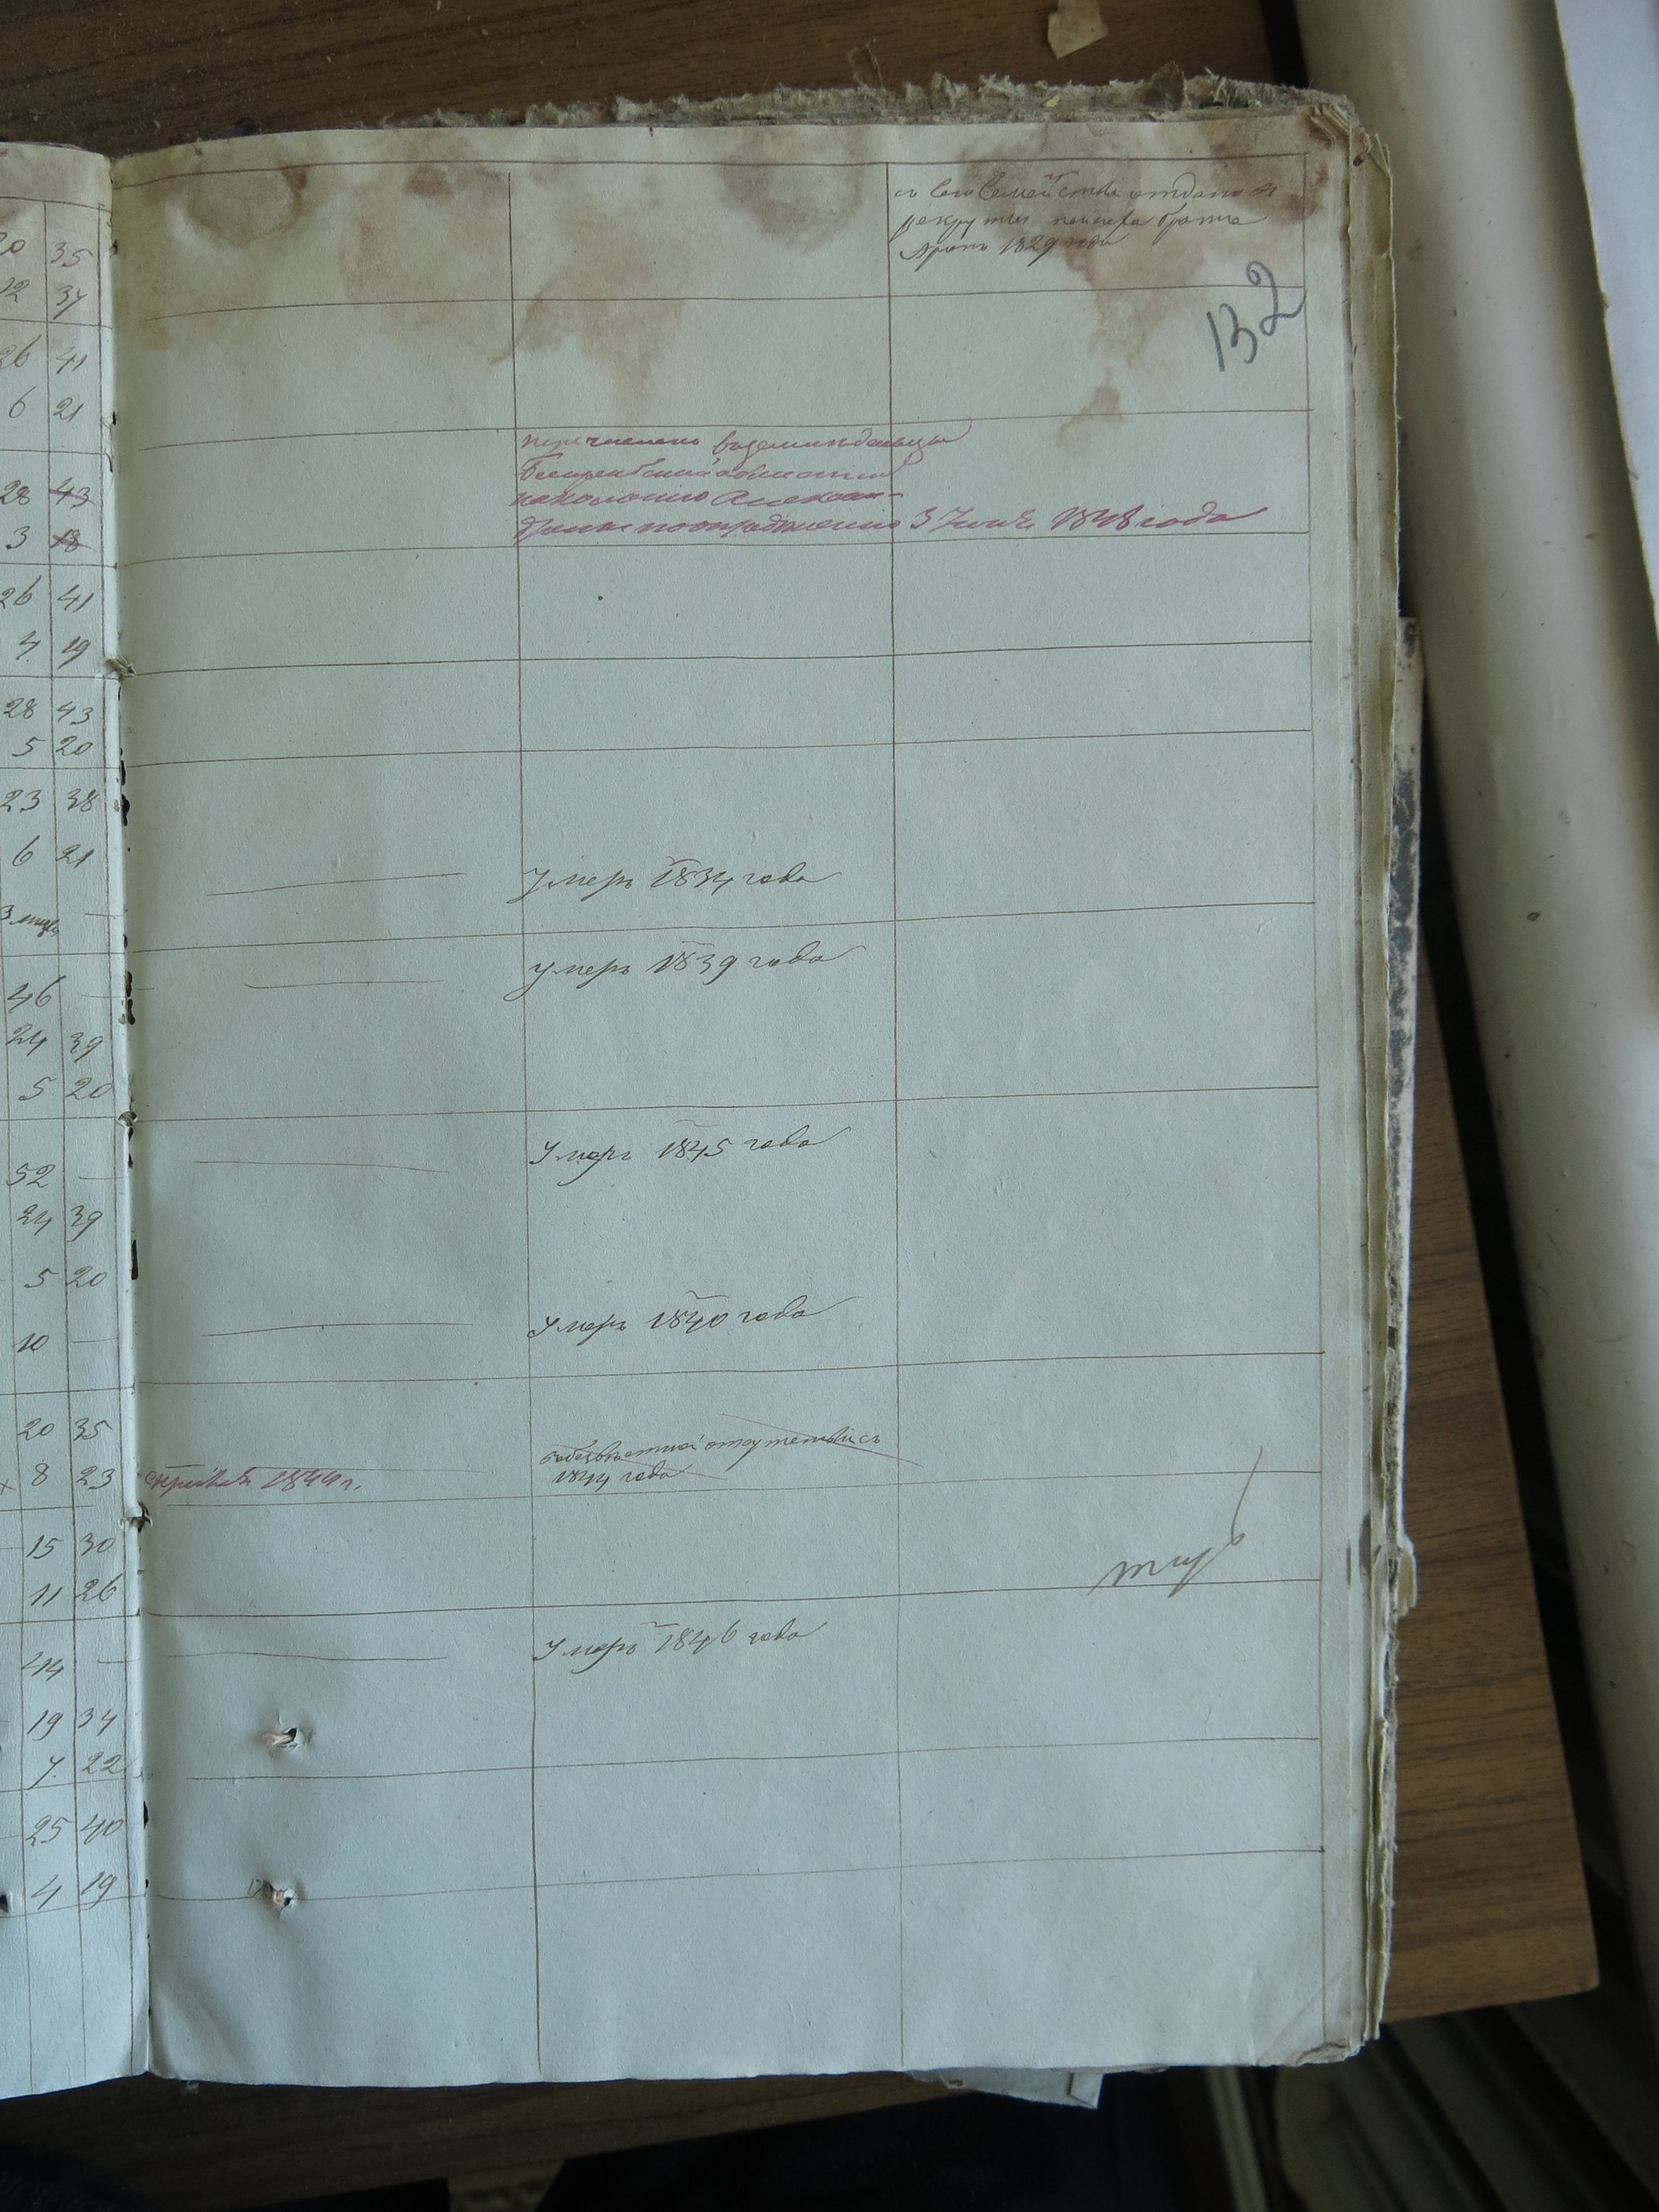 съ Сего Семейства отдано въ
рекруты брата
1829 года
132
перечислено въземледельцы
Бессарабской области
на колонию Алексан-
3 Июня 1848 года
20 35
12 37
26 41
6 21
28 43
3 18
26 41
4 19
28 43
5 20
23 38
6 21
Умеръ 1834 года
46
Умеръ 1839 года
24 39
5 20
52
Умеръ 1845 года
24 39
5 20
10
Умеръ 1840 года
20 35
отсутствіи съ
1844 года
8 23
1844 г.
15 30
11 26
44
Умеръ 1846 года
19 34
7 22
25 40
4 19